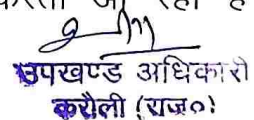 करता जा रहा है
उपखण्ड अधिकारी
करौली (राज०)